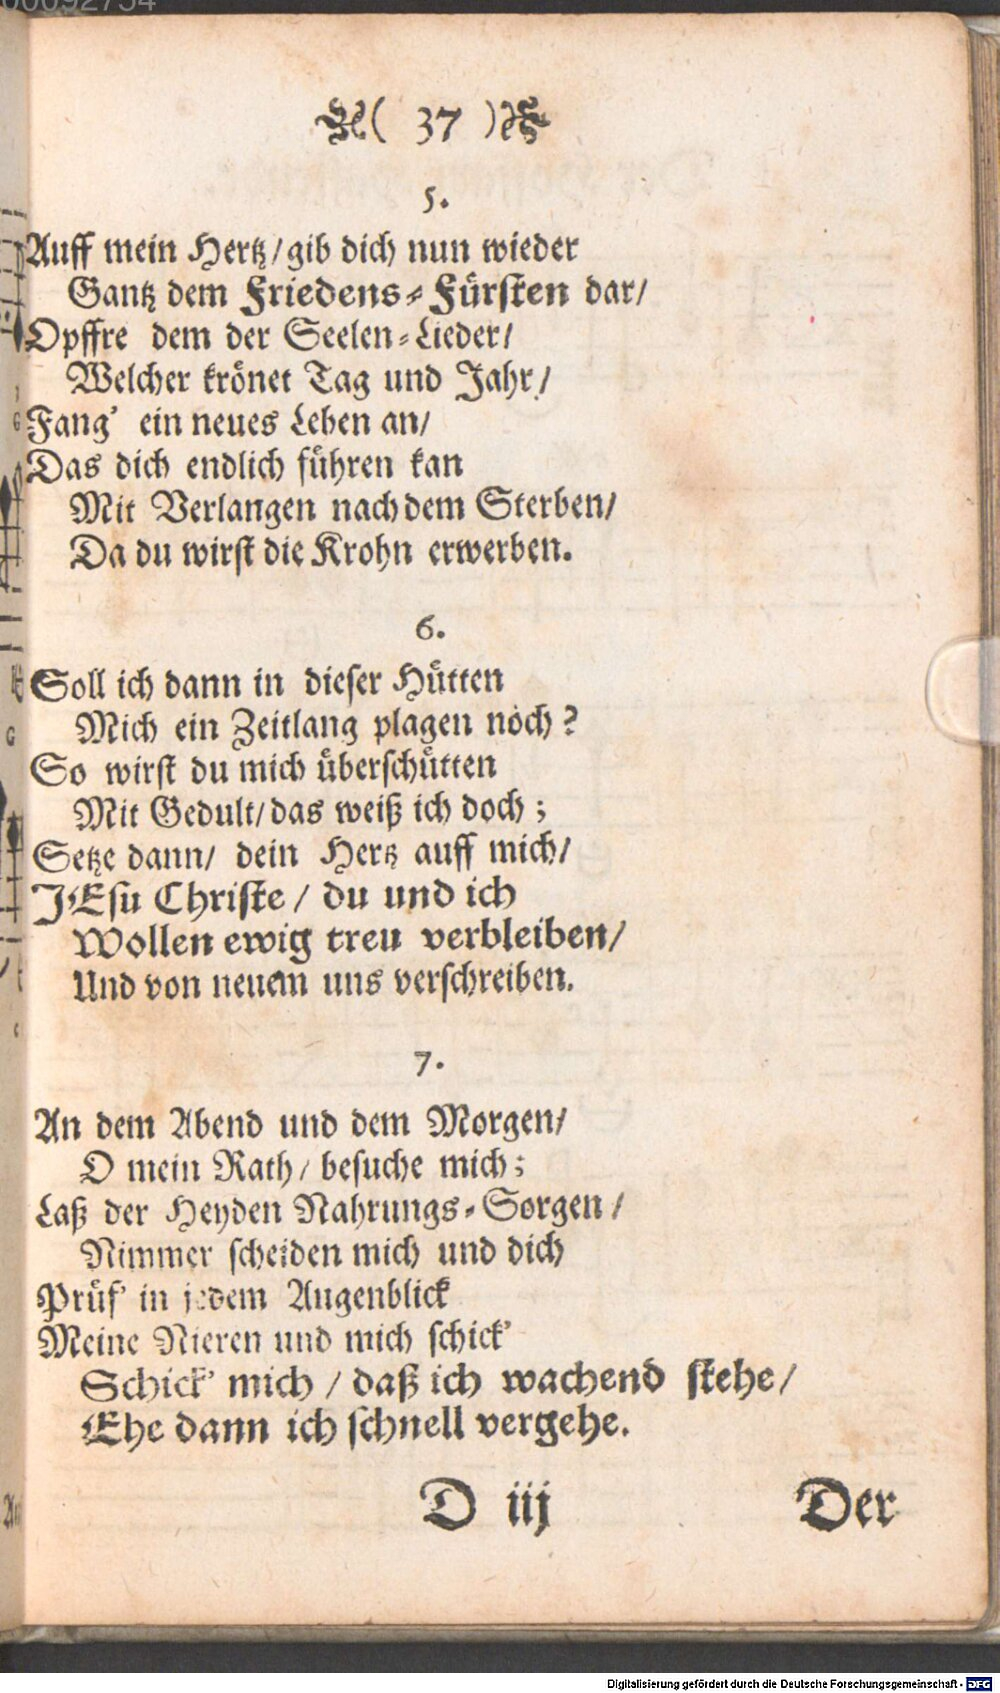 ( 37 )
5.
Auff mein Hertz/gib dich nun wieder
Gantz dem Friedens-Fürsten dar/
Opffre dem der Seelen-Lieder/
Welcher krönet Tag und Jahr/
Fang' ein neues Leben an/
Das dich endlich führen kan
Mit Verlangen nach dem Sterben/
Da du wirst die Krohn erwerben.
6.
Soll ich dann in dieser Hütten
Mich ein Zeitlang plagen noch?
So wirst du mich überschütten
Mit Gedult/das weiß ich doch;
Setze dann/ dein Hertz auff mich/
JEsu Christe/ du und ich
Wollen ewig treu verbleiben/
Und von neuem uns verschreiben.
7.
An dem Abend und dem Morgen/
O mein Rath/ besuche mich;
Laß der Heyden Nahrungs-Sorgen/
Nimmer scheiden mich und dich
Prüf' in jedem Augenblick
Meine Nieren und mich schick'
Schick' mich/ daß ich wachend stehe/
Ehe dann ich schnell vergehe.
D iij Der
Digitalisierung gefördert durch die Deutsche Forschungsgemeinschaft - DFG